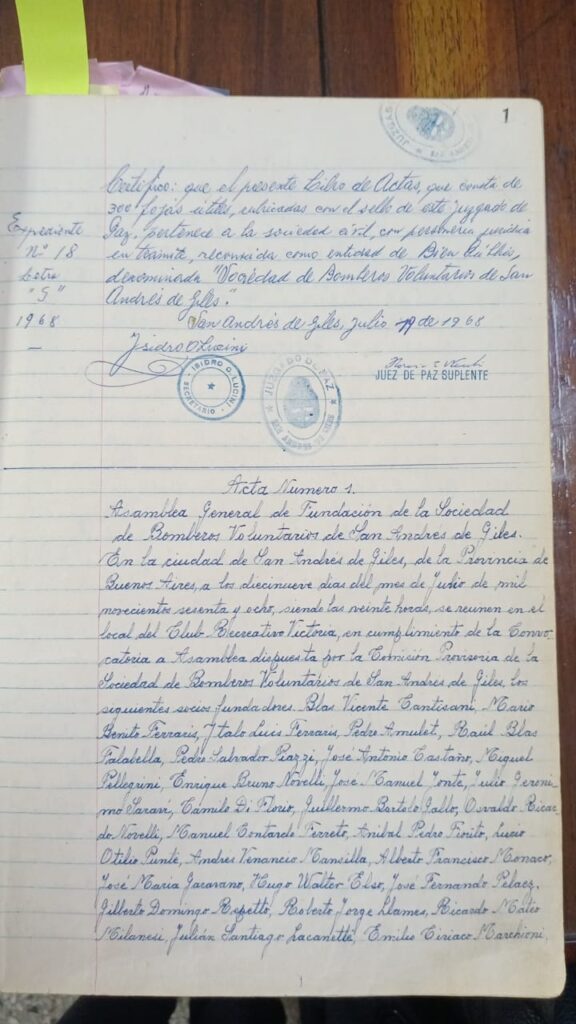 1
JUZGADO
Certifico: que el presente Libro de Actas, que consta de
300 fojas útiles, rubricadas con el sello de este juzgado de
Paz, pertenece a la sociedad civil, con personería jurídica
en trámite, reconocida como entidad de Bien Público,
denominada "Sociedad de Bomberos Voluntarios de San
Andrés de Giles."
Expediente
Nº 18
Letra
"S"
1968
San Andrés de Giles, Julio 19 de 1968
Isidro O Lucini
ISIDRO O. LUCINI
SECRETARIO
JUZGADO DE PAZ
SAN ANDRES DE GILES
JUEZ DE PAZ SUPLENTE
Acta Numero 1.
Asamblea General de Fundación de la Sociedad
de Bomberos Voluntarios de San Andrés de Giles.
En la ciudad de San Andrés de Giles, de la Provincia de
Buenos Aires, a los diecinueve días del mes de Julio de mil
novecientos sesenta y ocho, siendo las veinte horas, se reunen en el
local del Club Recreativo Victoria, en cumplimiento de la Convo-
catoria a Asamblea dispuesta por la Comisión Provisoria de la
Sociedad de Bomberos Voluntarios de San Andrés de Giles, los
siguientes socios fundadores: Blas Vicente Cantisani, Mario
Benito Ferraris, Italo Luis Ferraris, Pedro Amulet, Raúl Blas
Falabella, Pedro Salvador Piazzi, José Antonio Castaño, Miguel
Pellegrini, Enrique Bruno Novelli, José Manuel Jonte, Julio Geroni-
mo Sararí, Camilo Di Florio, Guillermo Bartolo Gallo, Osvaldo Ricar-
do Novelli, Manuel Contardo Ferreto, Anibal Pedro Fiorito, Lucio
Otilio Punté, Andres Venancio Mansilla, Alberto Francisco Monaco,
José Maria Garavano, Hugo Walter Elso, José Fernando Pelaez,
Gilberto Domingo Repetto, Roberto Jorge Llames, Ricardo Mateo
Milanesi, Julián Santiago Lacanette, Emilio Ciriaco Marchioni,
1